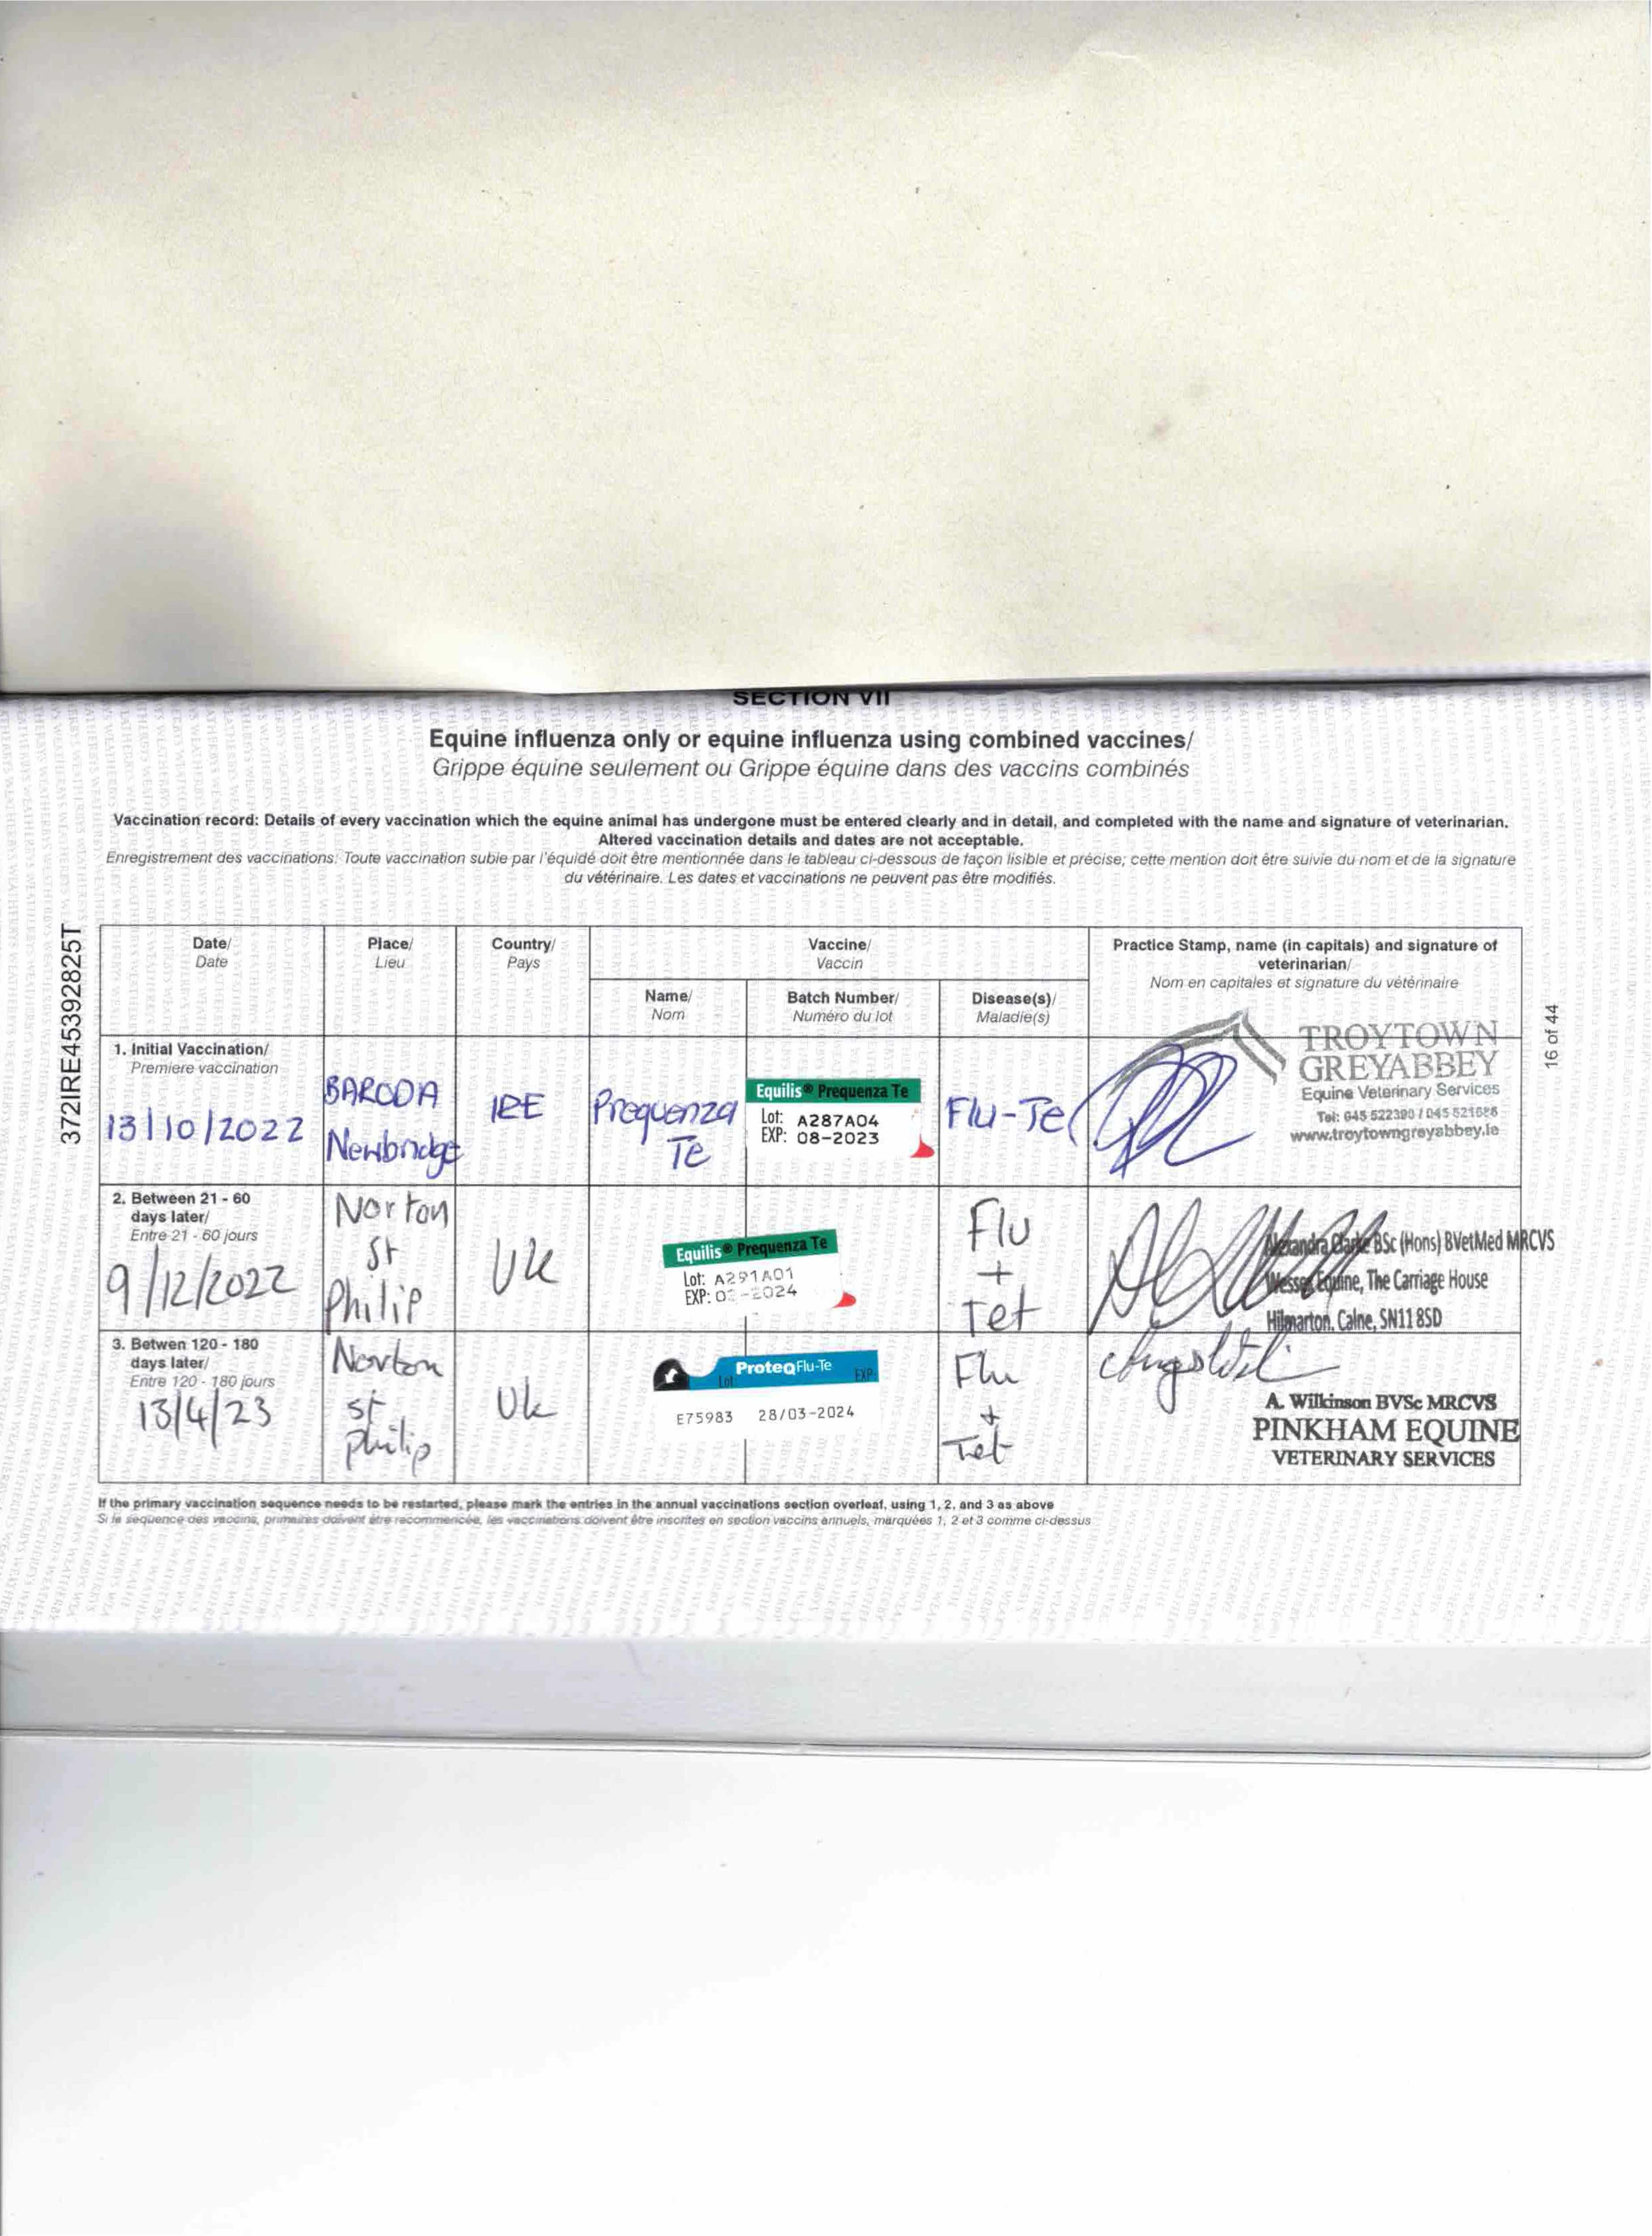 SECTION VII
Equine influenza only or equine influenza using combined vaccines/
Grippe équine seulement ou Grippe équine dans des vaccins combinés
Vaccination record: Details of every vaccination which the equine animal has undergone must be entered clearly and in detail, and completed with the name and signature of veterinarian.
Altered vaccination details and dates are not acceptable.
Enregistrement des vaccinations: Toute vaccination subie par l'équidé doit être mentionnée dans le tableau ci-dessous de façon lisible et précise; cette mention doit être suivie du nom et de la signature
du vétérinaire. Les dates et vaccinations ne peuvent pas être modifiés.
372IRE45392825T
16 of 44
Date/
Date
Place/
Lieu
Country/
Pays
Vaccine/
Vaccin
Name/
Nom
Batch Number/
Numéro du lot
Disease(s)/
Maladie(s)
Practice Stamp, name (in capitals) and signature of
veterinarian/
Nom en capitales et signature du vétérinaire
1. Initial Vaccination/
Premiere vaccination
13/10/2022
BARODA
Newbridge
IRE
Prequenza
Te
Equilis® Prequenza Te
Lot: A287A04
EXP: 08-2023
Flu-Te
TROYTOWN
GREYABBEY
Equine Veterinary Services
Tel: 045 522390 / 045 521686
www.troytowngreyabbey.ie
2. Between 21 - 60
days later/
Entre 21 - 60 jours
9/12/2022
Norton
St
Philip
UK
Equilis® Prequenza Te
Lot: A291A01
EXP: -2024
Flu
+
Tet
Alexandra Clarke BSc (Hons) BVetMed MRCVS
Wessex Equine, The Carriage House
Hilmarton, Calne, SN11 8SD
3. Betwen 120 - 180
days later/
Entre 120 - 180 jours
13/4/23
Norton
St
Philip
UK
ProteqFlu-Te
Lot
EXP
E75983 28/03-2024
Flu
+
Tet
A. Wilkinson BVSc MRCVS
PINKHAM EQUINE
VETERINARY SERVICES
If the primary vaccination sequence needs to be restarted, please mark the entries in the annual vaccinations section overleaf, using 1, 2, and 3 as above
Si la sequence des vaccins, primaires doivent être recommencée, les vaccinations doivent être inscrites en section vaccins annuels, marquées 1, 2 et 3 comme ci-dessus